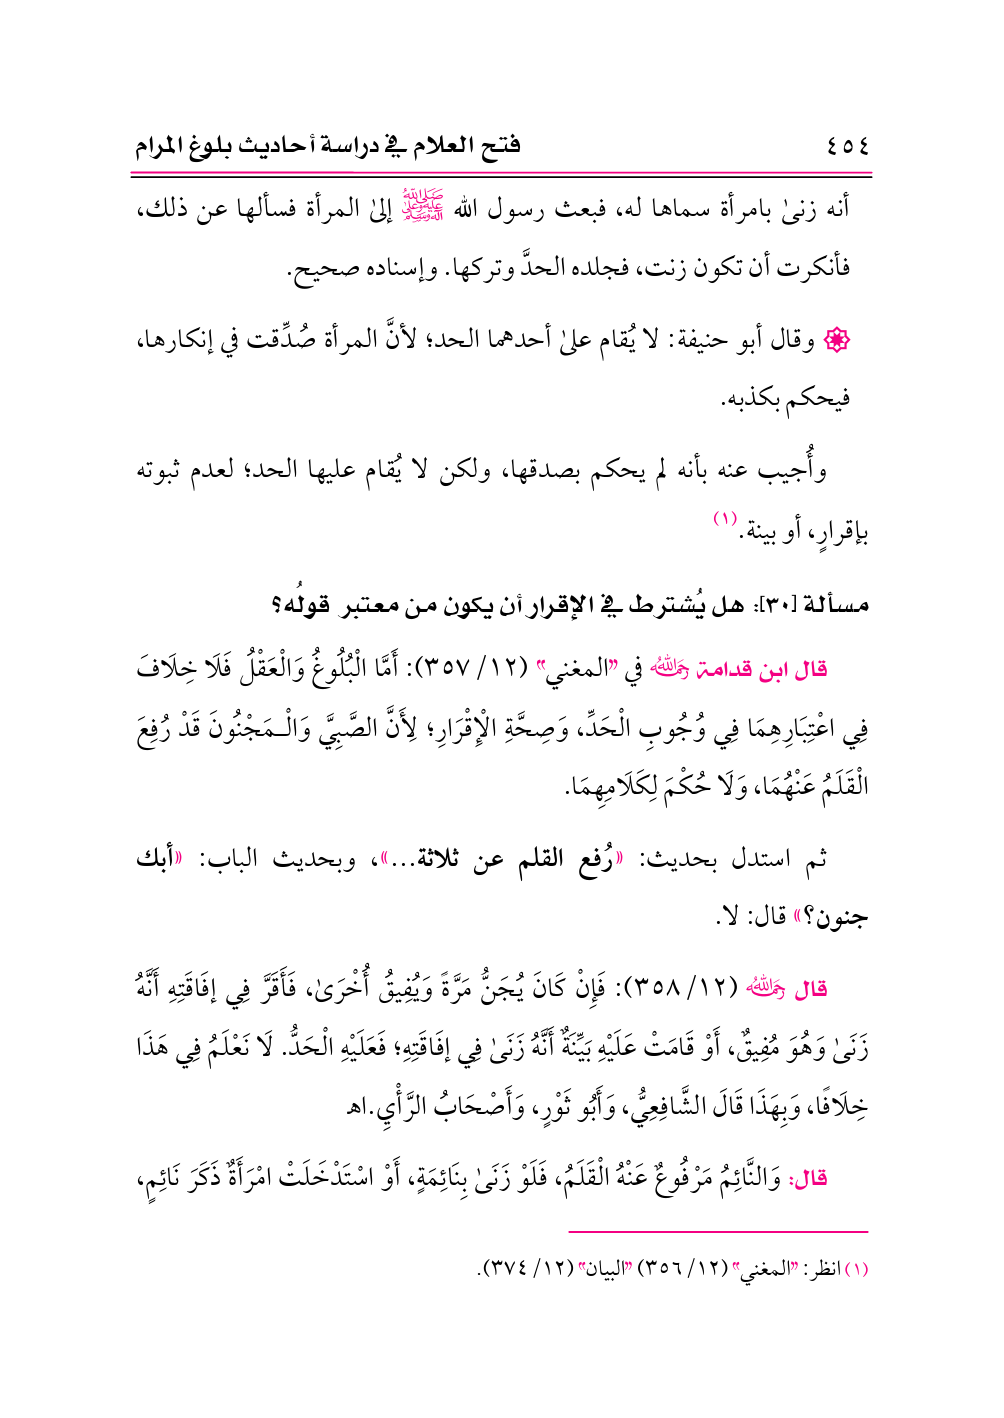 ٤٥٤ فتح العلام في دراسة أحاديث بلوغ المرام
أنه زنىٰ بامرأة سماها له، فبعث رسول الله ﷺ إلىٰ المرأة فسألها عن ذلك،
فأنكرت أن تكون زنت، فجلده الحدَّ وتركها. وإسناده صحيح.
وقال أبو حنيفة: لا يُقام علىٰ أحدهما الحد؛ لأنَّ المرأة صُدِّقت في إنكارها،
فيحكم بكذبه.
وأُجيب عنه بأنه لم يحكم بصدقها، ولكن لا يُقام عليها الحد؛ لعدم ثبوته
بإقرارٍ، أو بينة.(١)
مسألة [٣٠]: هل يُشترط في الإقرار أن يكون من معتبر قولُه؟
قال ابن قدامة رحمه الله في "المغني" (١٢/ ٣٥٧): أَمَّا الْبُلُوغُ وَالْعَقْلُ فَلَا خِلَافَ
فِي اعْتِبَارِهِمَا فِي وُجُوبِ الْحَدِّ، وَصِحَّةِ الْإِقْرَارِ؛ لِأَنَّ الصَّبِيَّ وَالْـمَجْنُونَ قَدْ رُفِعَ
الْقَلَمُ عَنْهُمَا، وَلَا حُكْمَ لِكَلَامِهِمَا.
ثم استدل بحديث: «رُفع القلم عن ثلاثة...»، وبحديث الباب: «أبك
جنون؟» قال: لا.
قال رحمه الله (١٢/ ٣٥٨): فَإِنْ كَانَ يُجَنُّ مَرَّةً وَيُفِيقُ أُخْرَىٰ، فَأَقَرَّ فِي إفَاقَتِهِ أَنَّهُ
زَنَىٰ وَهُوَ مُفِيقٌ، أَوْ قَامَتْ عَلَيْهِ بَيِّنَةٌ أَنَّهُ زَنَىٰ فِي إفَاقَتِهِ؛ فَعَلَيْهِ الْحَدُّ. لَا نَعْلَمُ فِي هَذَا
خِلَافًا، وَبِهَذَا قَالَ الشَّافِعِيُّ، وَأَبُو ثَوْرٍ، وَأَصْحَابُ الرَّأْيِ.اهـ
قال: وَالنَّائِمُ مَرْفُوعٌ عَنْهُ الْقَلَمُ، فَلَوْ زَنَىٰ بِنَائِمَةٍ، أَوْ اسْتَدْخَلَتْ امْرَأَةٌ ذَكَرَ نَائِمٍ،
(١) انظر: "المغني" (١٢/ ٣٥٦) "البيان" (١٢/ ٣٧٤).